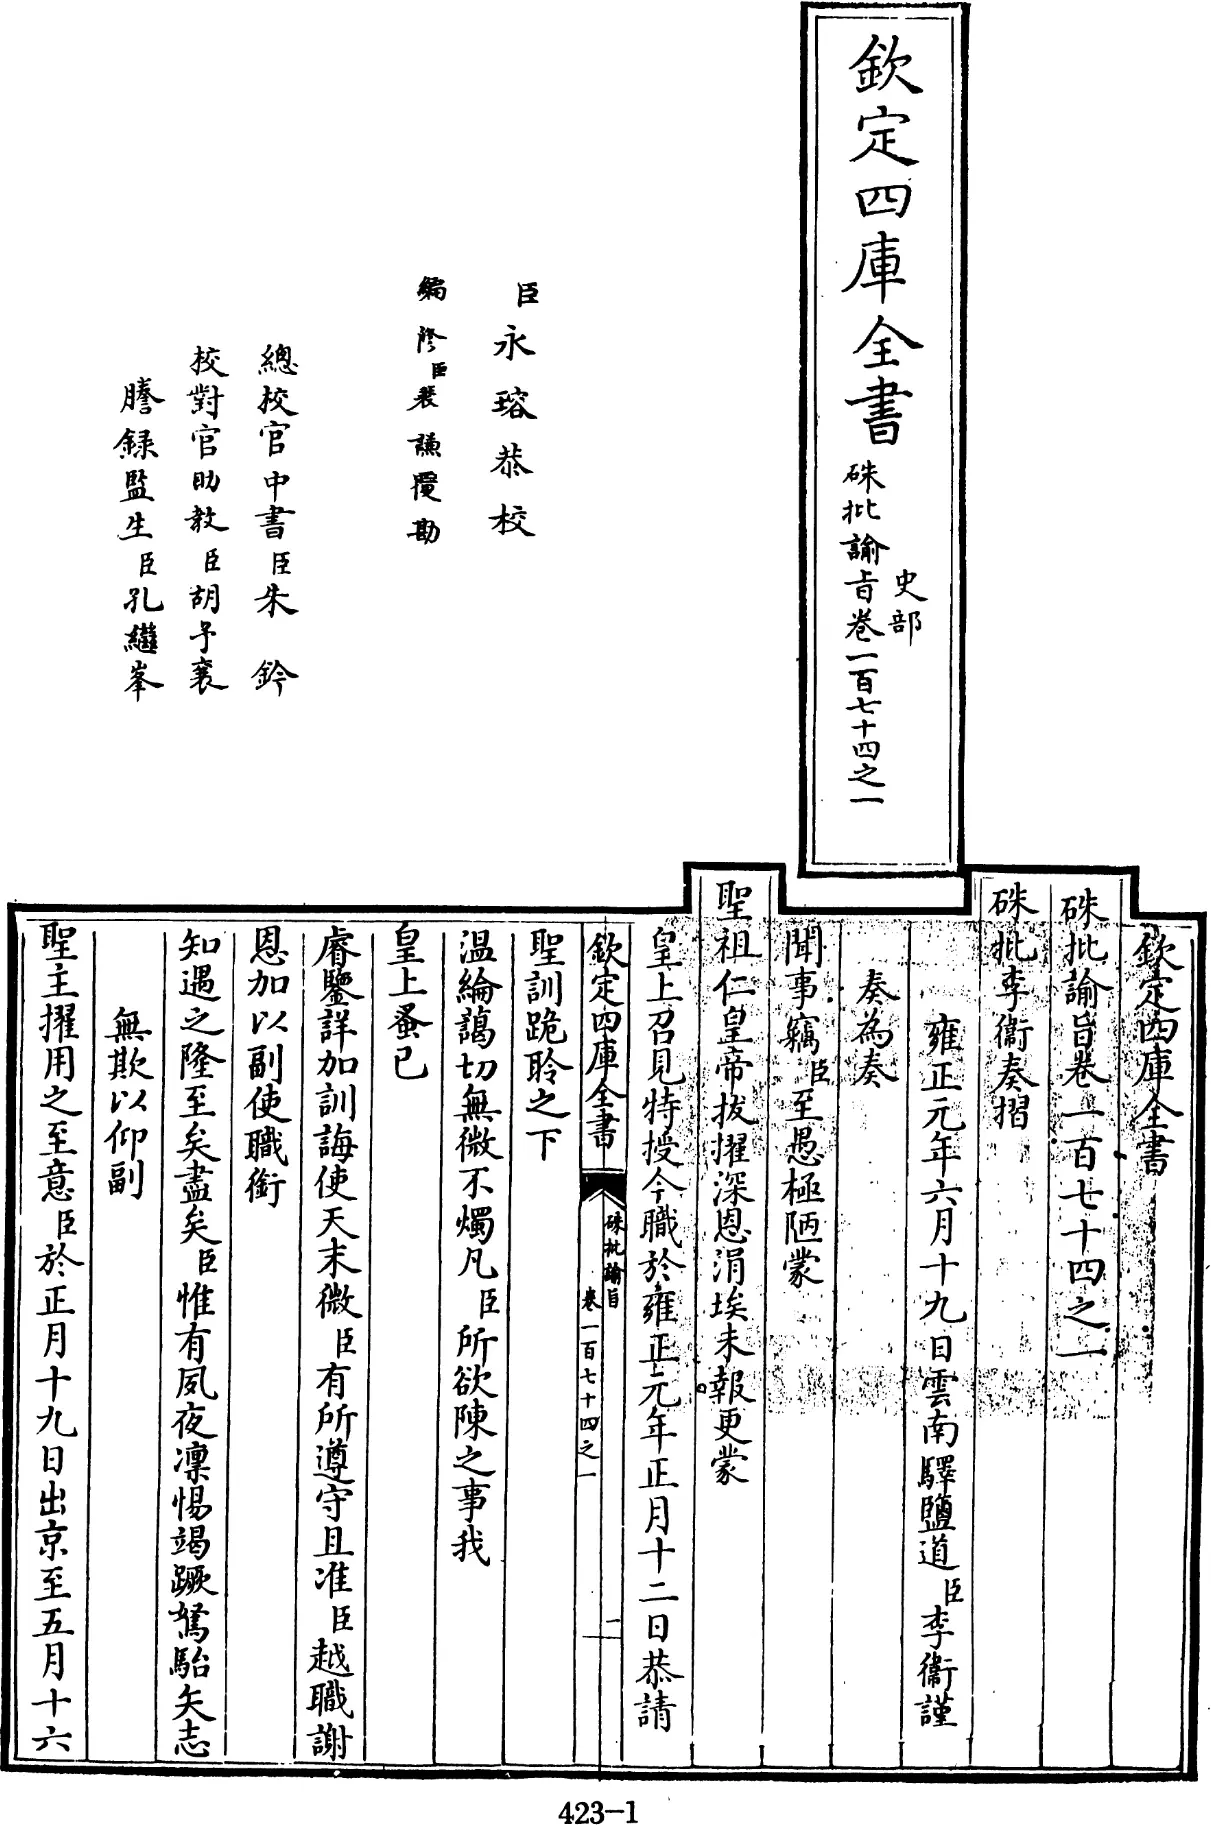 欽定四庫全書
史部
硃批諭旨卷一百七十四之一
臣永瑢恭校
編修臣裴謙覆勘
總校官中書臣朱鈐
校對官助教臣胡予襄
謄録監生臣孔繼峯
欽定四庫全書
硃批諭旨卷一百七十四之一
硃批李衞奏摺
雍正元年六月十九日雲南驛鹽道臣李衞謹
奏為奏
聞事竊臣至愚極陋蒙
聖祖仁皇帝拔擢深恩涓埃未報更蒙
皇上召見特授今職於雍正元年正月十二日恭請
欽定四庫全書
硃批諭旨
卷一百七十四之一
一
聖訓跪聆之下
溫綸藹切無微不燭凡臣所欲陳之事我
皇上蚤已
睿鑒詳加訓誨使天末微臣有所遵守且准臣越職謝
恩加以副使職銜
知遇之隆至矣盡矣臣惟有夙夜凛惕竭蹶駑駘矢志
無欺以仰副
聖主擢用之至意臣於正月十九日出京至五月十六
423-1